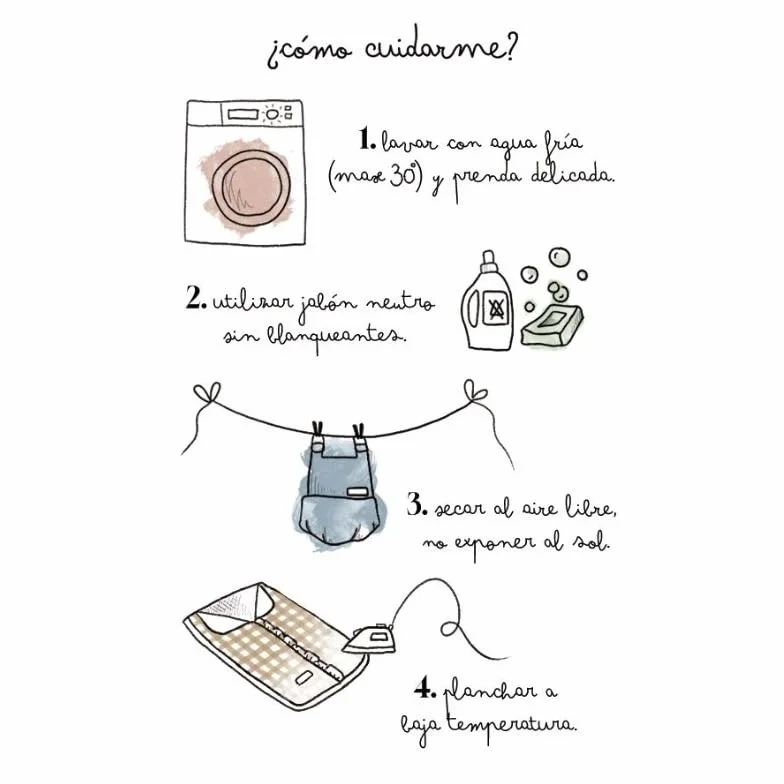 ¿cómo cuidarme?
1. lavar con agua fría
(max 30°) y prenda delicada.
2. utilizar jabón neutro
sin blanqueantes.
3. secar al aire libre,
no exponer al sol.
4. planchar a
baja temperatura.